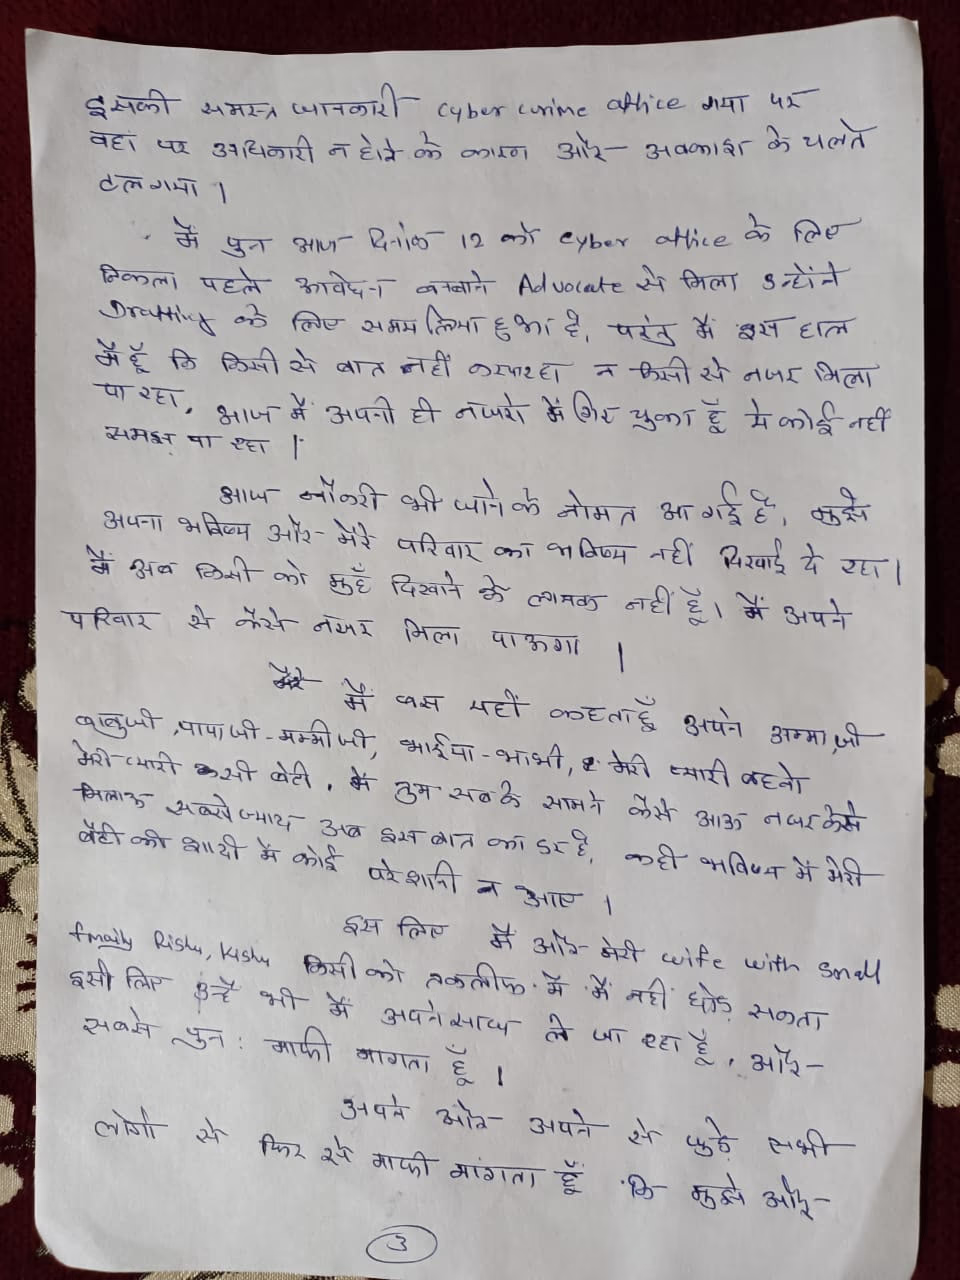 इसकी समस्त जानकारी cyber crime office गया पर
वहां पर अधिकारी न होने के कारण और अवकाश के चलते
टल गया।
मैं पुन आज दिनांक 12 को cyber office के लिए
निकला पहले आवेदन बनवाने Advocate से मिला उन्होंने
Drafting के लिए समय लिया हुआ है, परंतु मैं इस हाल
में हूँ कि किसी से बात नहीं कर पा रहा न किसी से नजर मिला
पा रहा, आज मैं अपनी ही नजरो में गिर चुका हूँ ये कोई नहीं
समझ पा रहा।
आज नौकरी भी जाने के नोमत आ गई है, मुझे
अपना भविष्य और मेरे परिवार का भविष्य नहीं दिखाई दे रहा।
मैं अब किसी को मुहँ दिखाने के लायक नहीं हूँ। मैं अपने
परिवार से कैसे नजर मिला पाऊगा।
मैं बस यहीं कहता हूँ अपने अम्मा जी
बाबुजी, पापाजी-मम्मीजी, भाईया-भाभी, मेरी प्यारी बहनो
मेरी प्यारी सी बेटी, मैं तुम सब के सामने कैसे आऊ नजर कैसे
मिलाऊ सबसे ज्यादा अब इस बात का डर है, कही भविष्य में मेरी
बेटी की शादी में कोई परेशानी न आए।
इस लिए मैं और मेरी wife with small
family Rishu, Kishu किसी को तकलीफ में मैं नहीं छोड़ सकता
इसी लिए उन्हें भी मैं अपने साथ ले जा रहा हूँ, और
सबसे पुन: माफी मागता हूँ।
अपने और अपने से जुड़े सभी
लोगो से फिर से माफी मांगता हूँ कि मुझे और
3